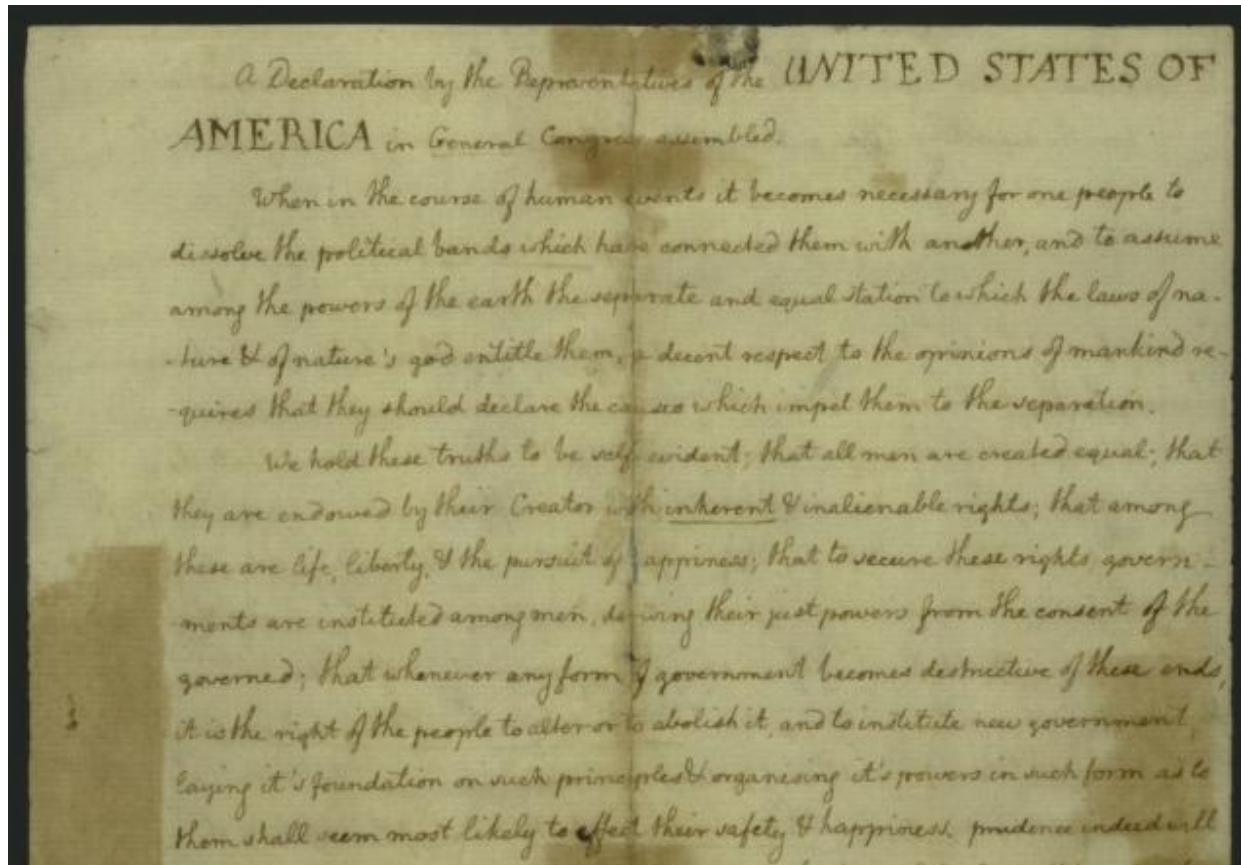 A Declaration by the Representatives of the UNITED STATES OF
AMERICA in General Congress assembled.
When in the course of human events it becomes necessary for one people to
dissolve the political bands which have connected them with another, and to assume
among the powers of the earth the separate and equal station to which the laws of na-
-ture & of nature's god entitle them, a decent respect to the opinions of mankind re-
-quires that they should declare the causes which impel them to the separation.
We hold these truths to be self evident; that all men are created equal; that
they are endowed by their Creator with inherent & inalienable rights; that among
these are life, liberty, & the pursuit of happiness; that to secure these rights, govern-
ments are instituted among men, deriving their just powers from the consent of the
governed; that whenever any form of government becomes destructive of these ends,
it is the right of the people to alter or to abolish it, and to institute new government,
laying it's foundation on such principles & organising it's powers in such form as to
them shall seem most likely to effect their safety & happiness. prudence indeed will